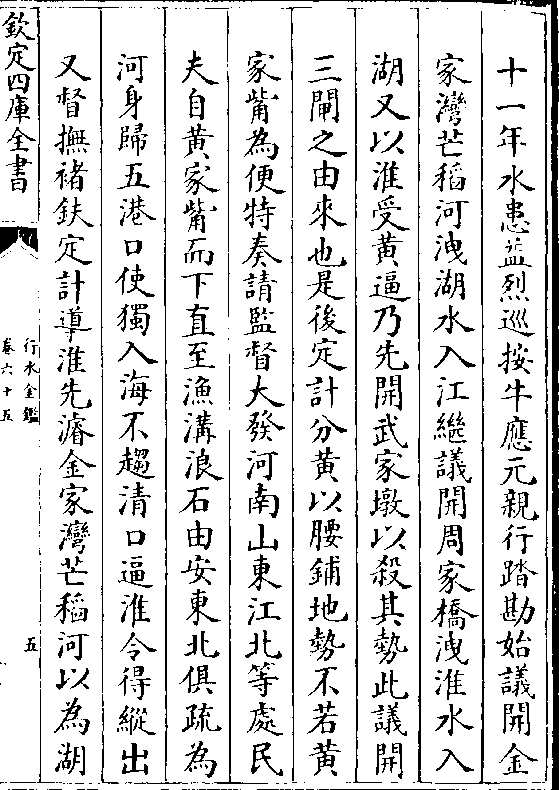 十一年水患益烈巡按牛應元親行踏勘始議開金
家灣芒稻河洩湖水入江繼議開周家橋洩淮水入
湖又以淮受黃逼乃先開武家墩以殺其勢此議開
三閘之由來也是後定計分黃以腰鋪地勢不若黃
家觜為便特奏請監督大發河南山東江北等處民
夫自黃家觜而下直至漁溝浪石由安東北俱疏為
河身歸五港口使獨入海不趨清口逼淮令得縱出
又督撫褚鈇定計導淮先濬金家灣芒稻河以為湖
欽定四庫全書
行水金鑑
卷六十五
五